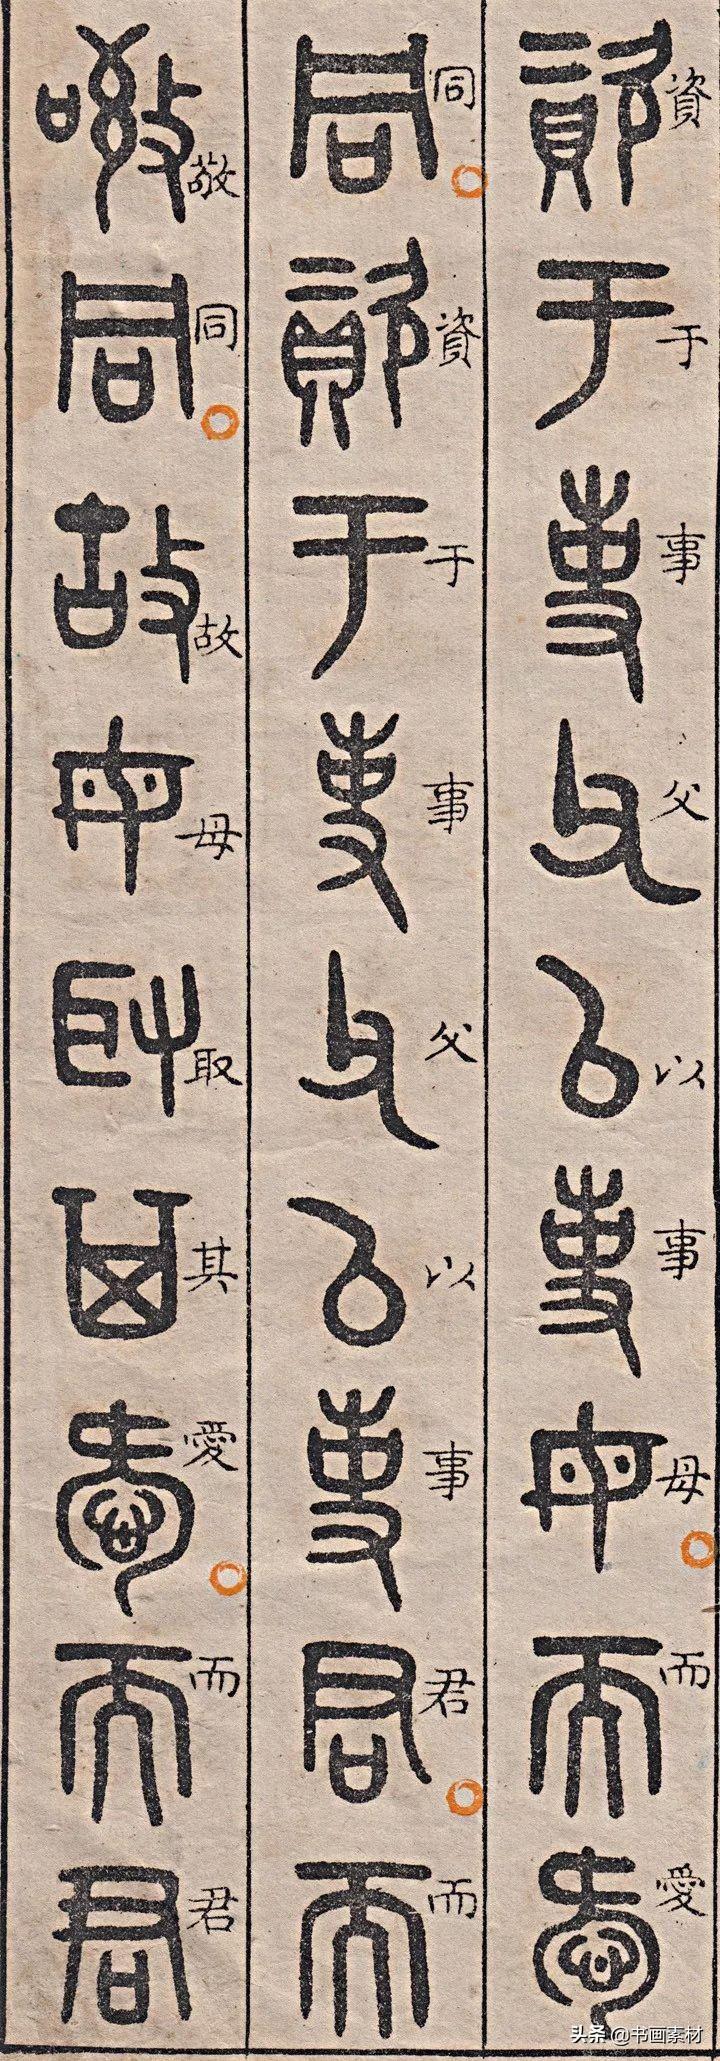 資于事父以事母而愛
同資于事父以事君而
敬同故母取其愛而君
头条 @书画素材